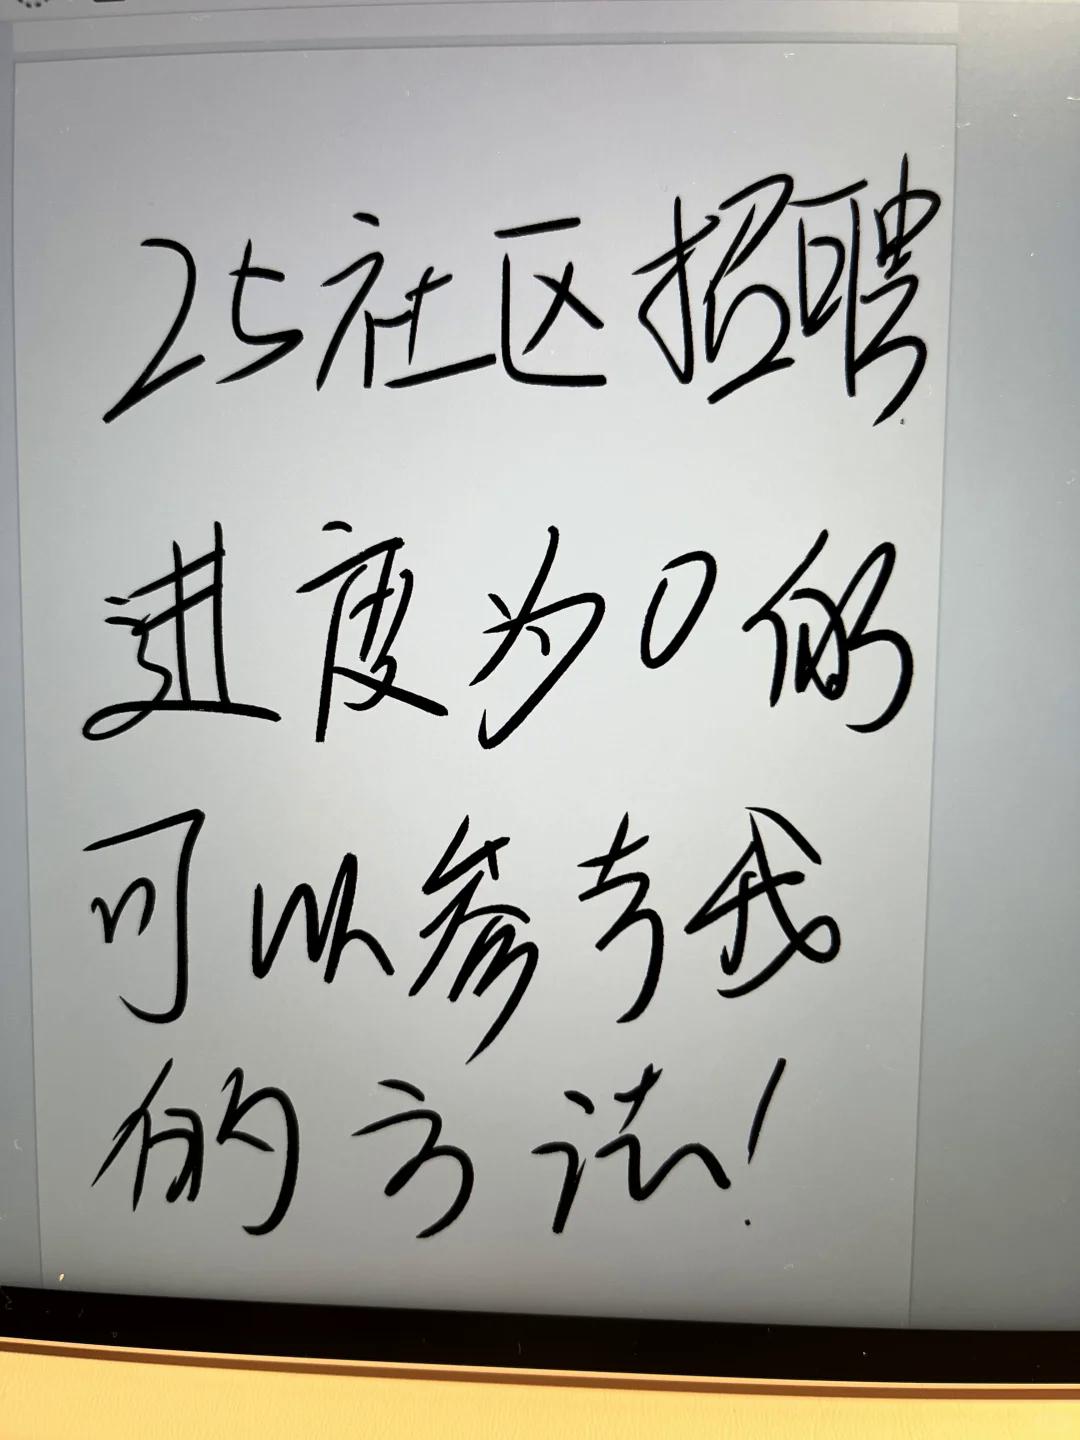 25社区招聘
进度为0的
可以参考我
的方法!